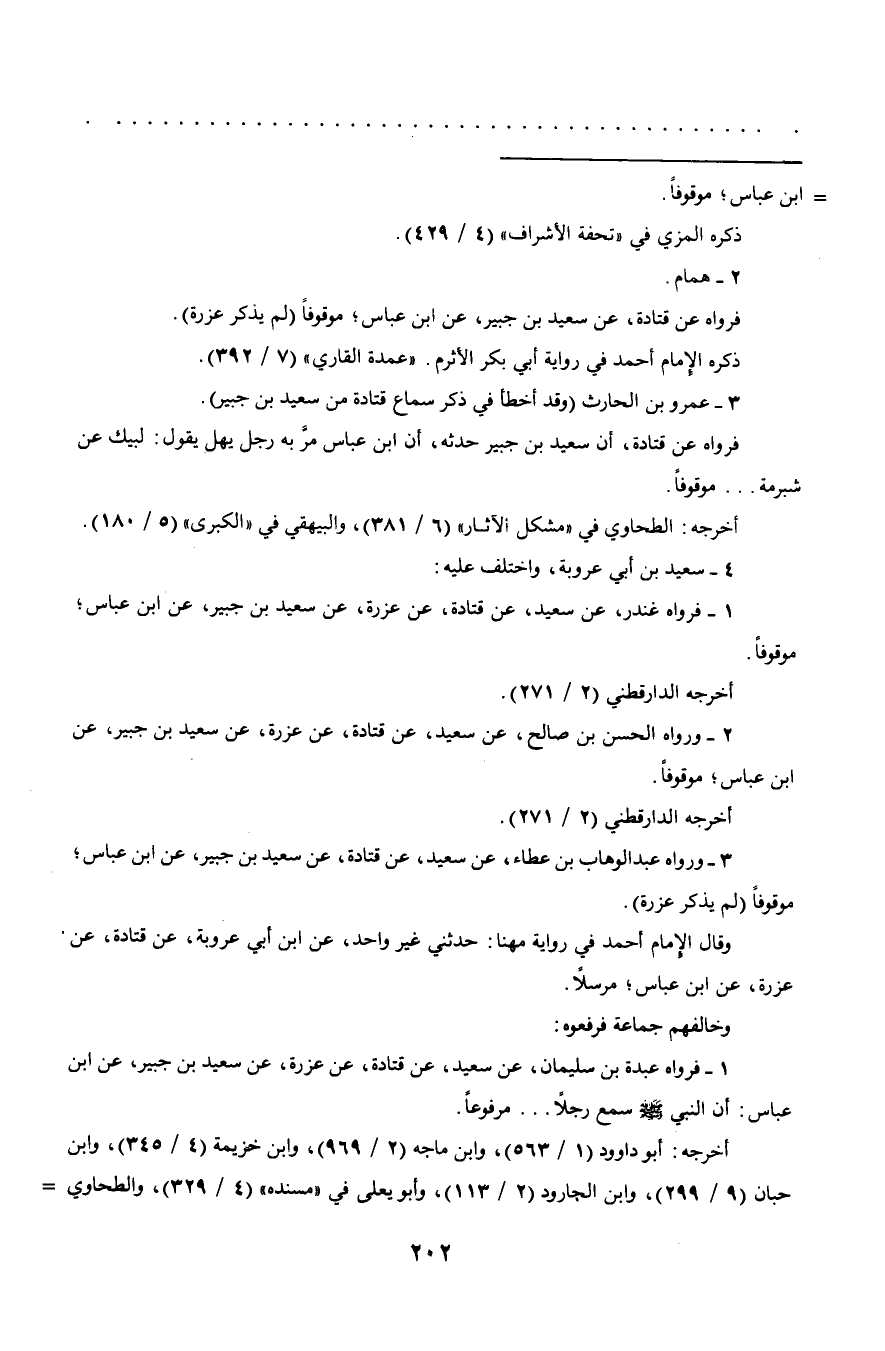 . . . . . . . . . . . . . . . . . . . . . . . . . . . . . . . . . . . . . . . . . . .
= ابن عباس؛ موقوفاً.
ذكره المزي في «تحفة الأشراف» (٤ / ٤٢٩).
٢ ـ همام.
فرواه عن قتادة، عن سعيد بن جبير، عن ابن عباس؛ موقوفاً (لم يذكر عزرة).
ذكره الإمام أحمد في رواية أبي بكر الأثرم. «عمدة القاري» (٧ / ٣٩٢).
٣ ـ عمرو بن الحارث (وقد أخطأ في ذكر سماع قتادة من سعيد بن جبير).
فرواه عن قتادة، أن سعيد بن جبير حدثه، أن ابن عباس مرَّ به رجل يهل يقول: لبيك عن
شبرمة... موقوفاً.
أخرجه: الطحاوي في «مشكل الآثار» (٦ / ٣٨١)، والبيهقي في «الكبرى» (٥ / ١٨٠).
٤ ـ سعيد بن أبي عروبة، واختلف عليه:
١ ـ فرواه غندر، عن سعيد، عن قتادة، عن عزرة، عن سعيد بن جبير، عن ابن عباس؛
موقوفاً.
أخرجه الدارقطني (٢ / ٢٧١).
٢ ـ ورواه الحسن بن صالح، عن سعيد، عن قتادة، عن عزرة، عن سعيد بن جبير، عن
ابن عباس؛ موقوفاً.
أخرجه الدارقطني (٢ / ٢٧١).
٣ ـ ورواه عبدالوهاب بن عطاء، عن سعيد، عن قتادة، عن سعيد بن جبير، عن ابن عباس؛
موقوفاً (لم يذكر عزرة).
وقال الإمام أحمد في رواية مهنا: حدثني غير واحد، عن ابن أبي عروبة، عن قتادة، عن
عزرة، عن ابن عباس؛ مرسلاً.
وخالفهم جماعة فرفعوه:
١ ـ فرواه عبدة بن سليمان، عن سعيد، عن قتادة، عن عزرة، عن سعيد بن جبير، عن ابن
عباس: أن النبي ﷺ سمع رجلاً... مرفوعاً.
أخرجه: أبو داوود (١ / ٥٦٣)، وابن ماجه (٢ / ٩٦٩)، وابن خزيمة (٤ / ٣٤٥)، وابن
حبان (٩ / ٢٩٩)، وابن الجارود (٢ / ١١٣)، وأبو يعلى في «مسنده» (٤ / ٣٢٩)، والطحاوي =
٢٠٢